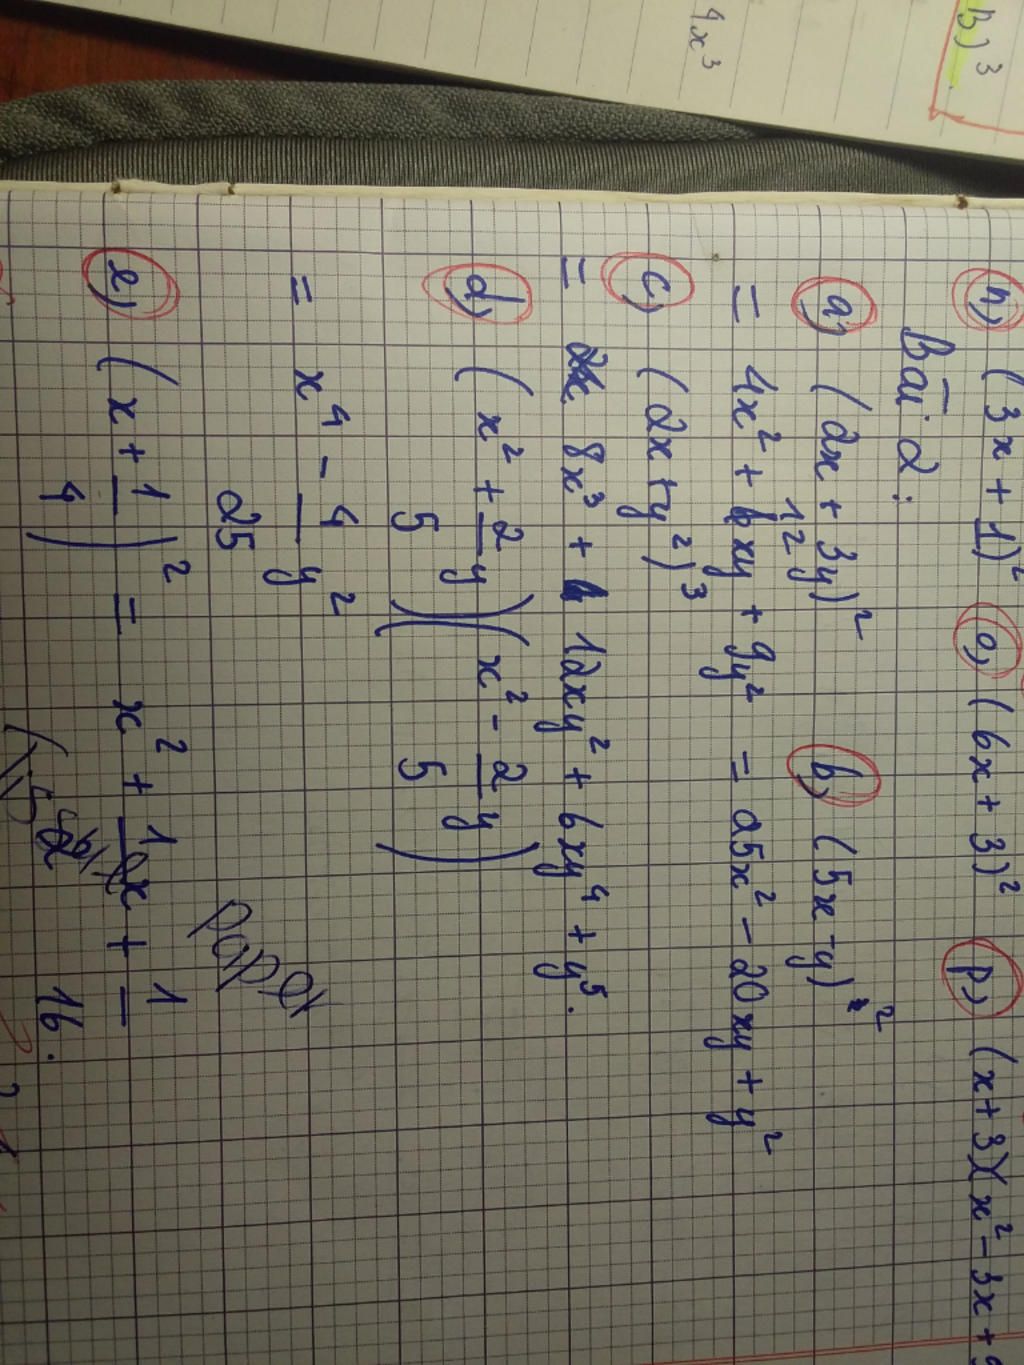 B)³
4x³
n) (3x + 1)² o) (6x + 3)² p) (x + 3)(x² - 3x + 9
Bài 2:
a) (2x + 3y)² b) (5x - y)²
= 4x² + 12xy + 9y² = 25x² - 20xy + y²
c) (2x + y²)³
= 8x³ + 12xy² + 6xy⁴ + y⁵.
d) (x² + 2/5 y)(x² - 2/5 y)
= x⁴ - 4/25 y²
e) (x + 1/4)² = x² + 1/2 x + 1/16.